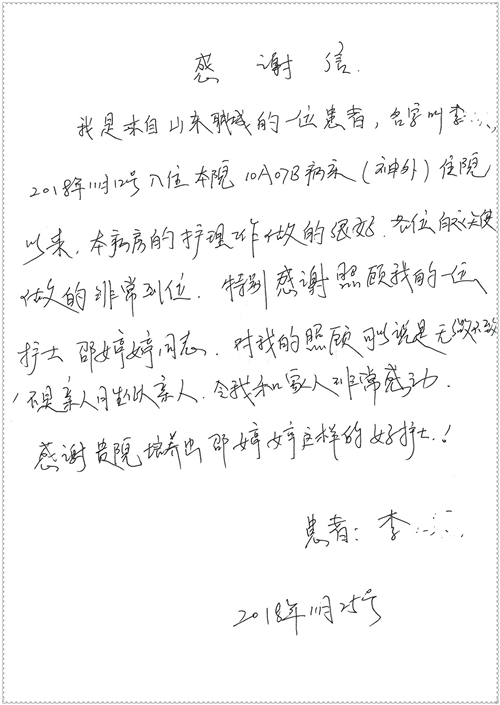 感谢信.
我是来自山东聊城的一位患者，名字叫李
2018年11月12号入住本院10A07B病床(神外)住院
以来，本病房的护理工作做的很好.各位白衣天使
做的非常到位.特别感谢照顾我的一位
护士邵婷婷同志.对我的照顾可以说是无微不致
不是亲人胜似亲人.令我和家人非常感动.
感谢贵院培养出邵婷婷这样的好护士!
患者:李
2018年11月25号